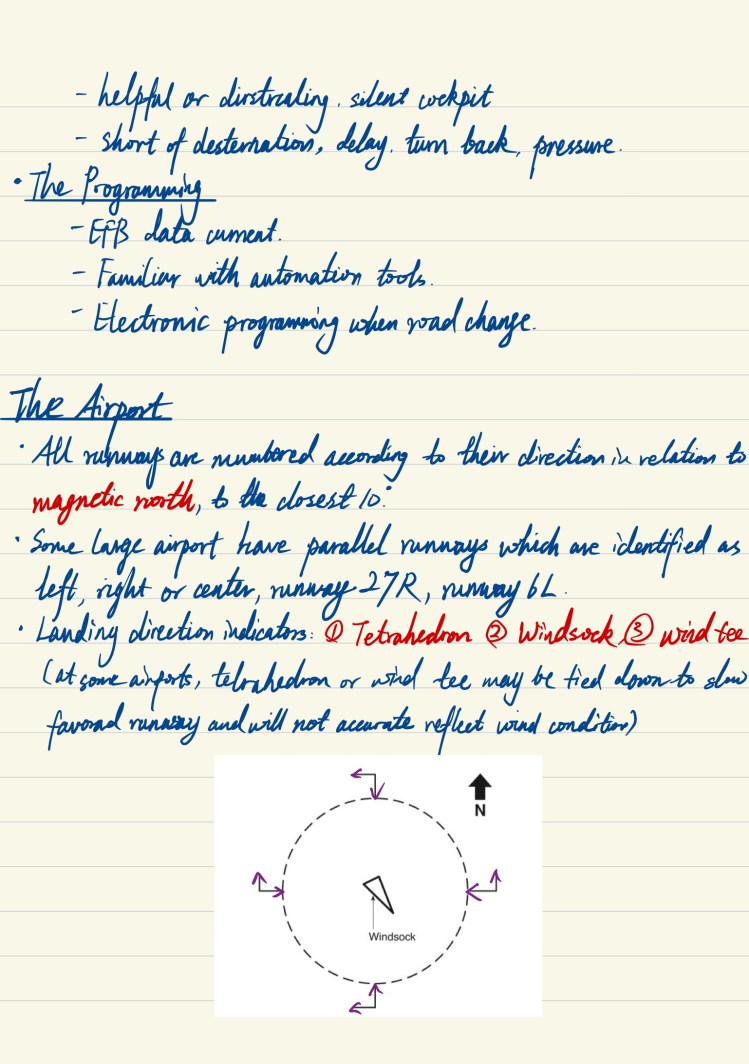 - helpful or dirstraling. silent cockpit
- short of desternation, delay. turn back, pressure.
· The Programming
- EFB data current.
- Familiar with automation tools.
- Electronic programming when road change.
The Airport
· All runways are numbered according to their direction in relation to
magnetic north, to the closest 10°.
· Some large airport have parallel runways which are identified as
left, right or center, runway 27R, runway 6L.
· Landing direction indicators: ① Tetrahedron ② Windsock ③ wind tee
(at some airports, tetrahedron or wind tee may be tied down to show
favored runway and will not accurate reflect wind condition)
N
Windsock